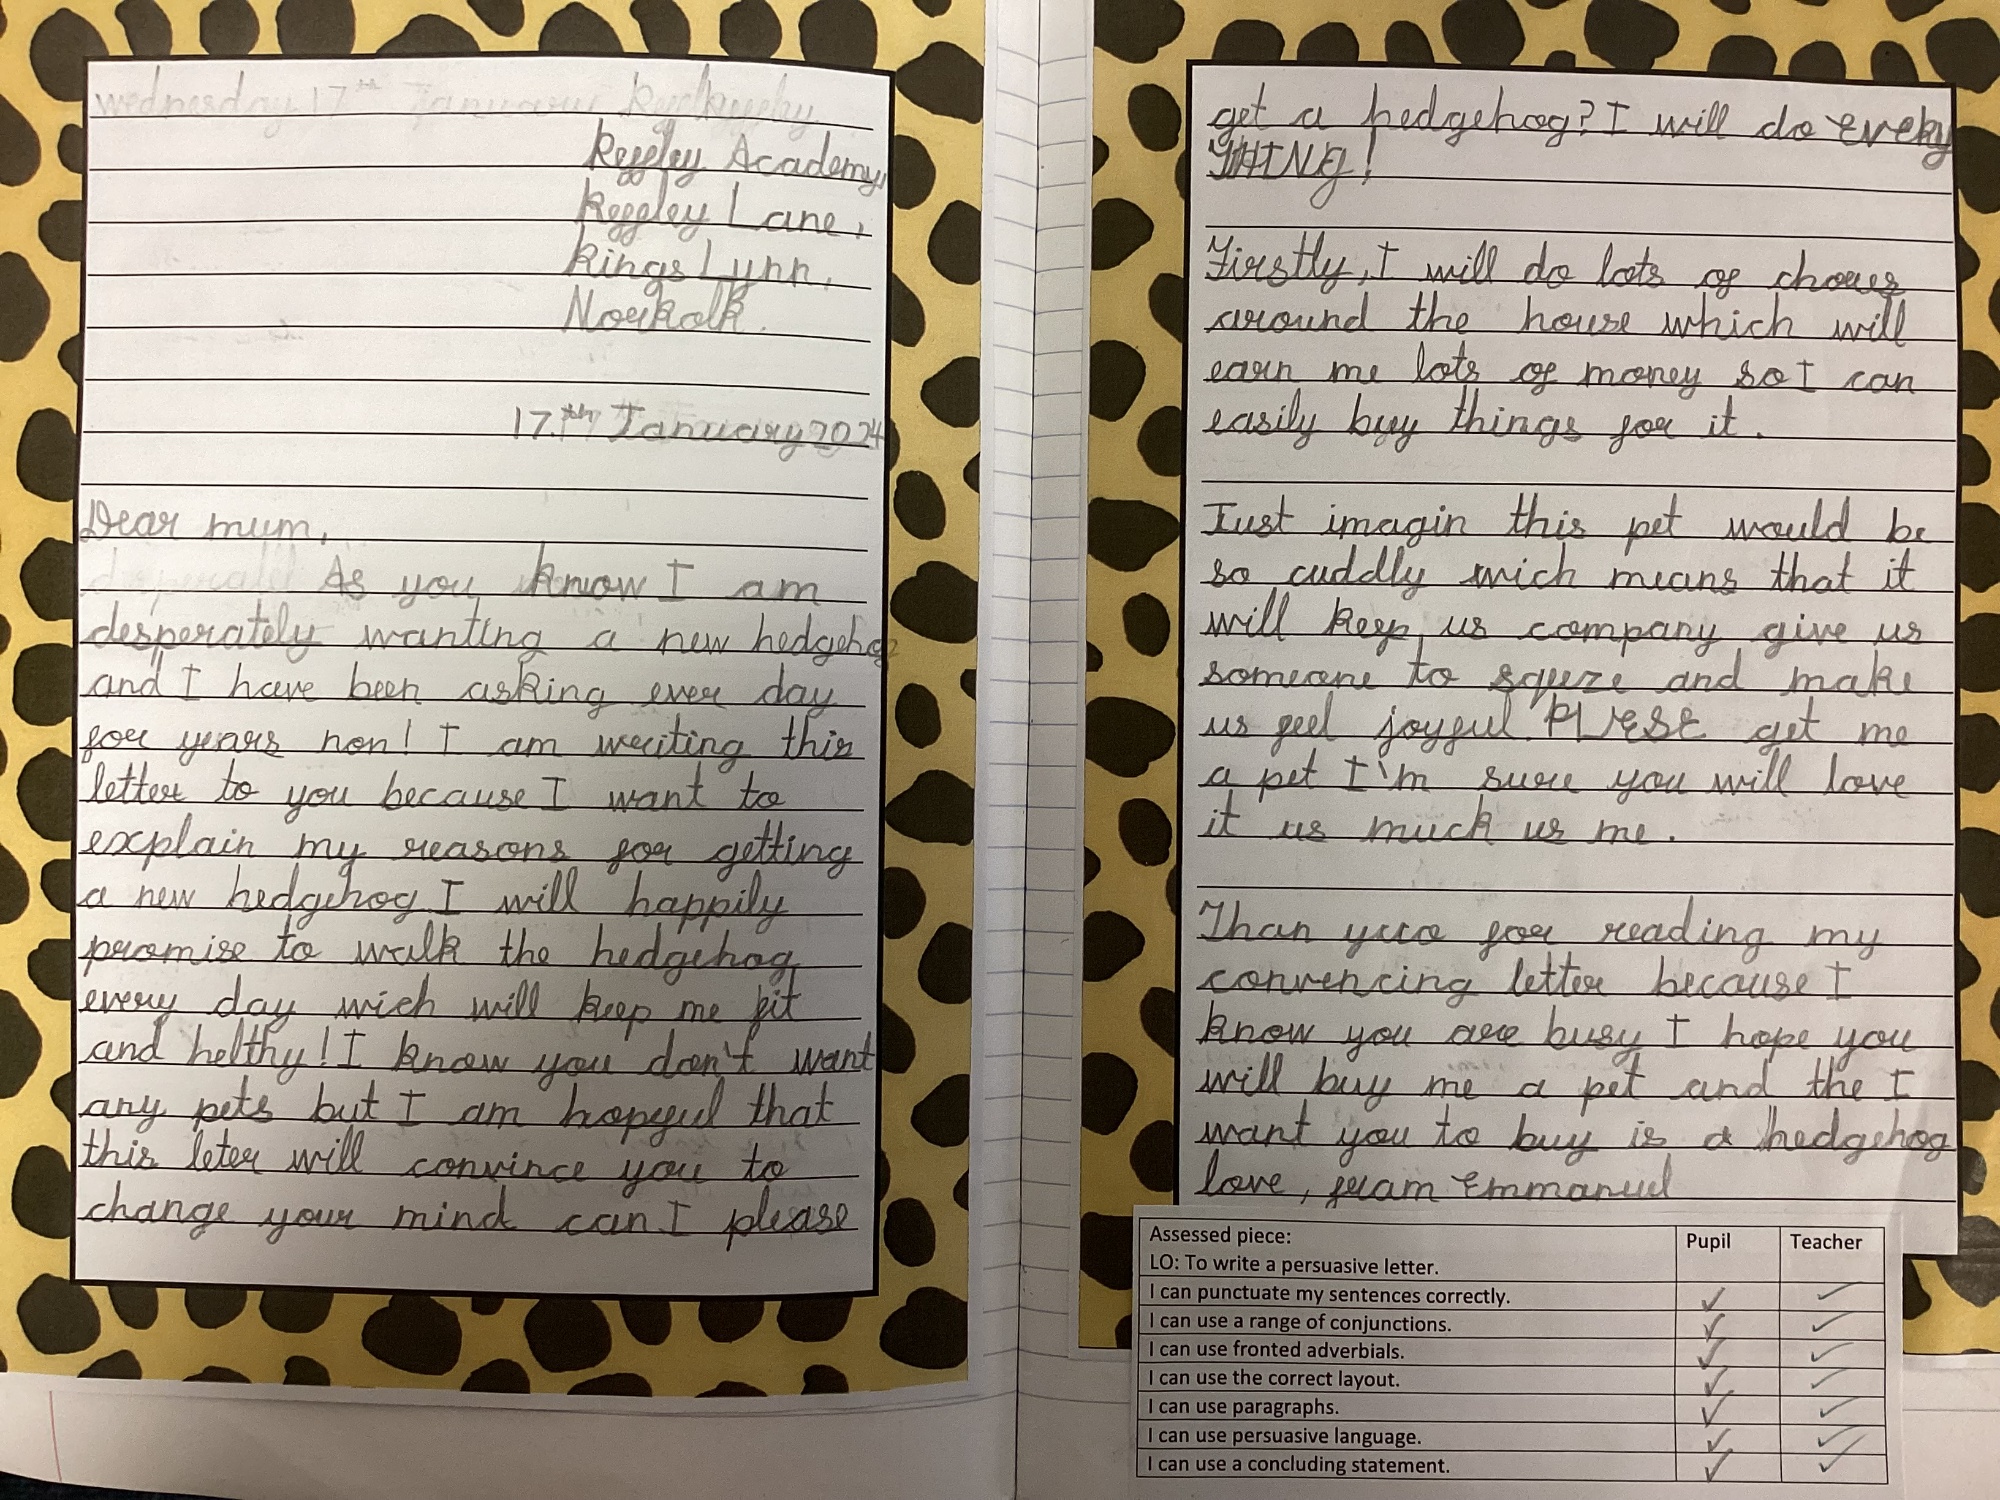 wednesday 17th January
Reffley Academy,
Reffley Lane,
Kings Lynn,
Norkolk.
17.th January 2024
Dear mum,
As you know I am
desperately wanting a new hedgehog
and I have been asking ever day
for years non! I am writing this
letter to you because I want to
explain my reasons for getting
a new hedgehog I will happily
promise to walk the hedgehog
every day wich will keep me fit
and helthy! I know you don't want
any pets but I am hopeful that
this leter will convince you to
change your mind can I please
get a hedgehog? I will do Every
THING!
Firstly, I will do lots of chores
around the house which will
earn me lots of money so I can
easily buy things for it.
Just imagin this pet would be
so cuddly wich means that it
will keep us company give us
someone to squeze and make
us feel joyful. PLESE get me
a pet I'm sure you will love
it us much us me.
Than you for reading my
convencing letter because I
know you are busy I hope you
will buy me a pet and the I
want you to buy is a hedgehog
love, fram Emmanuel
Assessed piece: Pupil Teacher
LO: To write a persuasive letter.
I can punctuate my sentences correctly. ✓ ✓
I can use a range of conjunctions. ✓ ✓
I can use fronted adverbials. ✓ ✓
I can use the correct layout. ✓ ✓
I can use paragraphs. ✓ ✓
I can use persuasive language. ✓ ✓
I can use a concluding statement. ✓ ✓